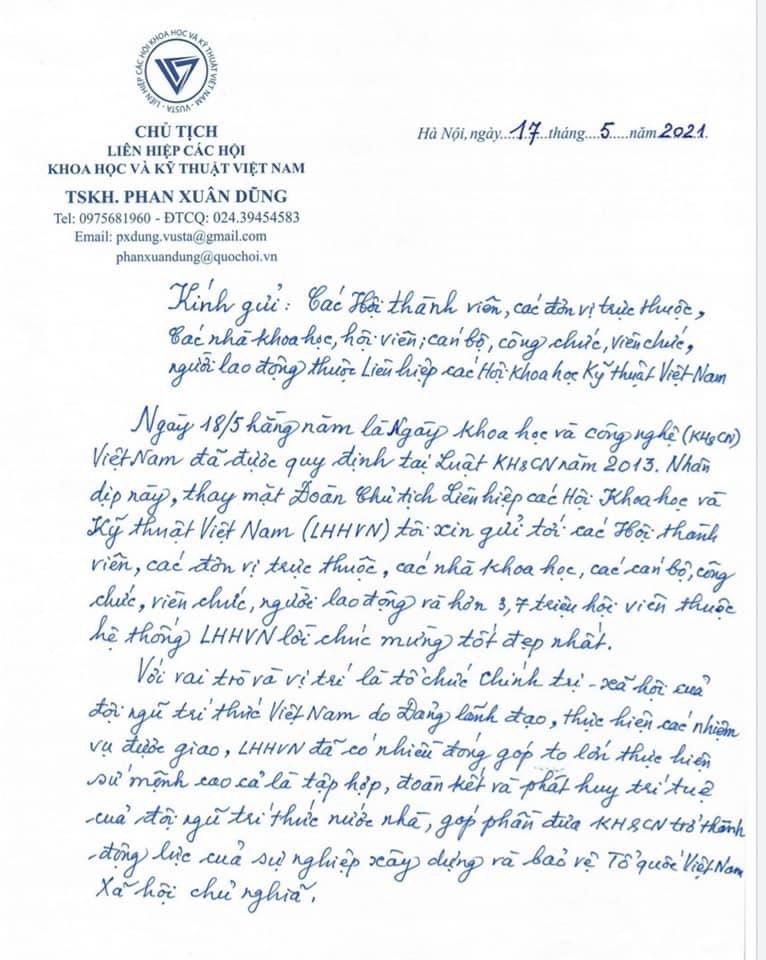 LIÊN HIỆP CÁC HỘI KHOA HỌC VÀ KỸ THUẬT VIỆT NAM - VUSTA -
CHỦ TỊCH
LIÊN HIỆP CÁC HỘI
KHOA HỌC VÀ KỸ THUẬT VIỆT NAM
TSKH. PHAN XUÂN DŨNG
Tel: 0975681960 - ĐTCQ: 024.39454583
Email: pxdung.vusta@gmail.com
phanxuandung@quochoi.vn
Hà Nội, ngày...17...tháng...5...năm 2021
Kính gửi: Các Hội thành viên, các đơn vị trực thuộc,
Các nhà khoa học, hội viên; cán bộ, công chức, viên chức,
người lao động thuộc Liên hiệp các Hội Khoa học Kỹ thuật Việt Nam
Ngày 18/5 hằng năm là Ngày Khoa học và công nghệ (KH&CN)
Việt Nam đã được quy định tại Luật KH&CN năm 2013. Nhân
dịp này, thay mặt Đoàn Chủ tịch Liên hiệp các Hội Khoa học và
Kỹ thuật Việt Nam (LHHVN) tôi xin gửi tới các Hội thành
viên, các đơn vị trực thuộc, các nhà khoa học, các cán bộ, công
chức, viên chức, người lao động và hơn 3,7 triệu hội viên thuộc
hệ thống LHHVN lời chúc mừng tốt đẹp nhất.
Với vai trò và vị trí là tổ chức Chính trị - xã hội của
đội ngũ trí thức Việt Nam do Đảng lãnh đạo, thực hiện các nhiệm
vụ được giao, LHHVN đã có nhiều đóng góp to lớn thực hiện
sứ mệnh cao cả là tập hợp, đoàn kết và phát huy trí tuệ
của đội ngũ trí thức nước nhà, góp phần đưa KH&CN trở thành
động lực của sự nghiệp xây dựng và bảo vệ Tổ quốc Việt Nam
Xã hội chủ nghĩa.